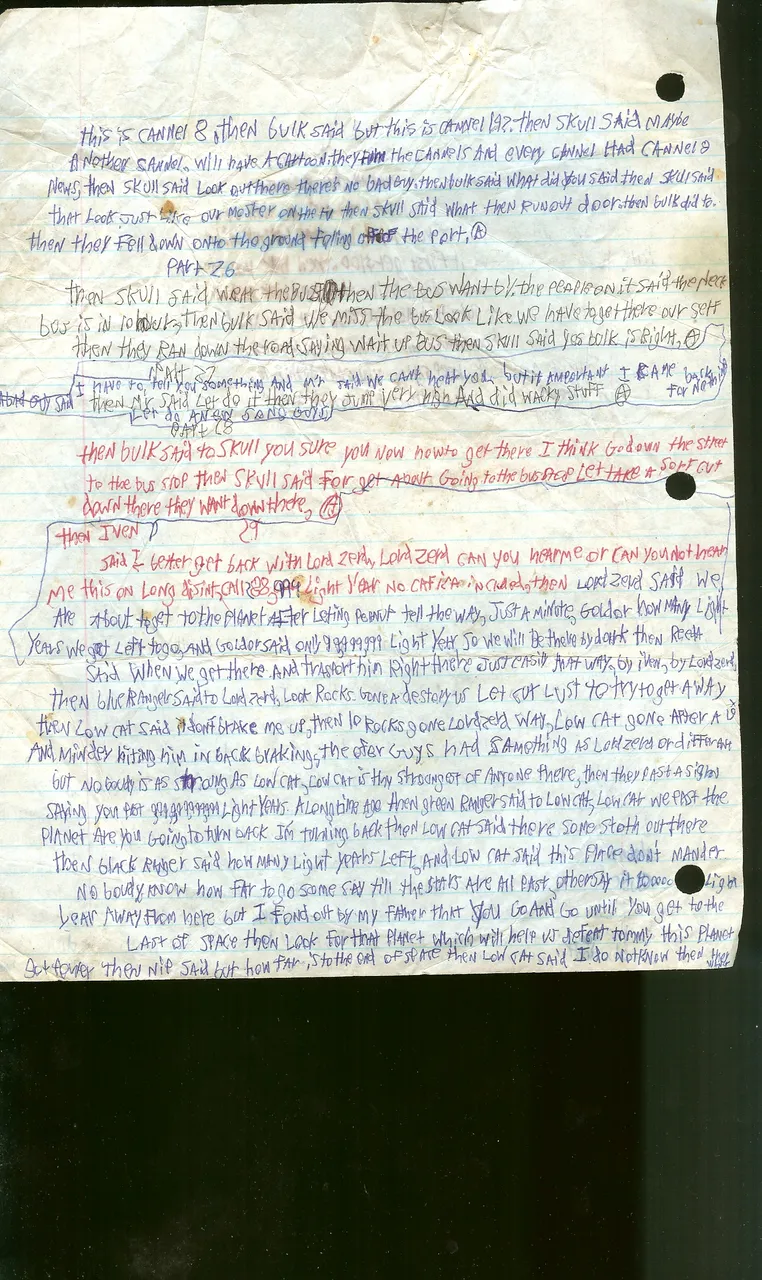 this is CANNEL 8, then bulk said but this is CANNEL 19?. then SKULL SAid MAYbe
ANother SANNEL. will have A CArtoon. they the CANNELS And every CANNEL HAD CANNEL 8
News, then SKULL SAid Look out there there's no bad guy. then bulk said what did you said then SKULL said
that Look Just Like our monster on the tv then SKULL Said what then Run out door. then bulk did to.
then they Fell down onto the ground faling off the port. A
PART 26
then SKULL SAid the BUS then the bus WANT by. the PeaPle on it said the Neck
bus is in 10 hour, then bulk said we miss the bus Look Like we have to get there our self
then they RAN down the road SAYing WAit up bus then SKULL Said yes bulk is Right. A
PART 27
I have to tell you something And Mr said we cant hear you but it important I CAMe back
A bad Guy said then Mr SAid Let do it then they Jump Very high And did wacky stuff A for Nothing
Let do A New Song Guys
PART 28
then bulk said to SKULL you sure you Now how to get there I think Go down the street
to the bus stop then SKULL SAid For get About Going to the bus stop Let take A Sort cut
down there they want down there, A
then IVEN 29
said I better get back with Lord Zerd, Lord zerd CAN you hear me or CAN You Not hear
Me this on Long distint, CAll Light YeAr NO incluned, then LordZerd SAid we
Are About to get to the PlAnet After Leting tell the way, Just A minute, Goldor how MAny Light
Years we got Left to go, And Goldor SAid only 99999999 Light Year, So we will Be there by dark then
SAid When we get there And trasport him Right there Just easily that way, by iven, by Lord zerd,
then blue Ranger SAid to Lord zerd, Look Rocks. Gone A destory us Let try to get AwAy
then Low CAt SAid it dont brake me up, then 10 Rocks gone Lord zerd WAy, Low CAt gone After A
And hiting him in BACk braking, the oter Guys HAD SAmething as Lord zerd or differAnt
but No boudy is As strong As Low CAt, Low CAt is thy strongest of Anyone there, then they PAst A sign
SAying you Past Light YeArs A Long time Ago then green RAnger SAid to Low CAt, Low CAt we Past the
PlAnet Are You Going to turn back I'm turning back then Low CAt SAid there some out there
then blAck RAnger SAid how MAny Light years Left, And Low CAt SAid this PlAce don't MAnder
No boudy know how far to go some SAy till the stArs Are All PAst, Light
YeAr AwAy From here but I Fond out by my FAther that You Go And Go until You get to the
LAst of SpAce then Look For that PlAnet which will help us defeat tommy this PlAnet
then Nip SAid but how far is to the end of space then Low CAt SAid I do Not Know then